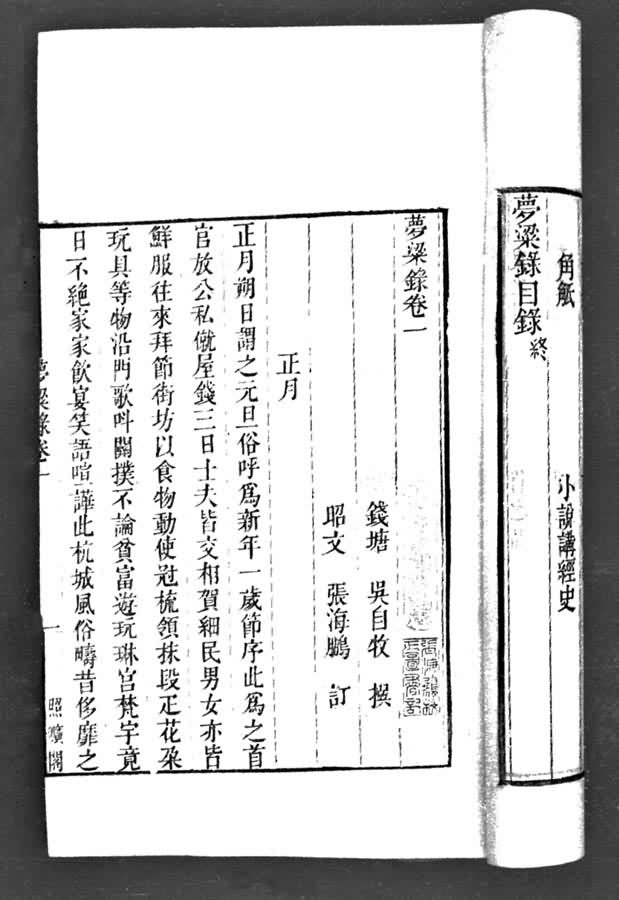 角觝　小說講經史
夢粱錄目錄終
夢粱錄卷一
錢塘　吳自牧　撰
昭文　張海鵬　訂
正月
正月朔日謂之元旦俗呼爲新年一歲節序此爲之首
官放公私僦屋錢三日士夫皆交相賀細民男女亦皆
鮮服往來拜節街坊以食物動使冠梳領抹段疋花朶
玩具等物沿門歌呌關撲不論貧富遊玩琳宮梵宇竟
日不絕家家飮宴笑語喧譁此杭城風俗疇昔侈靡之
夢粱錄卷一　一　照曠閣